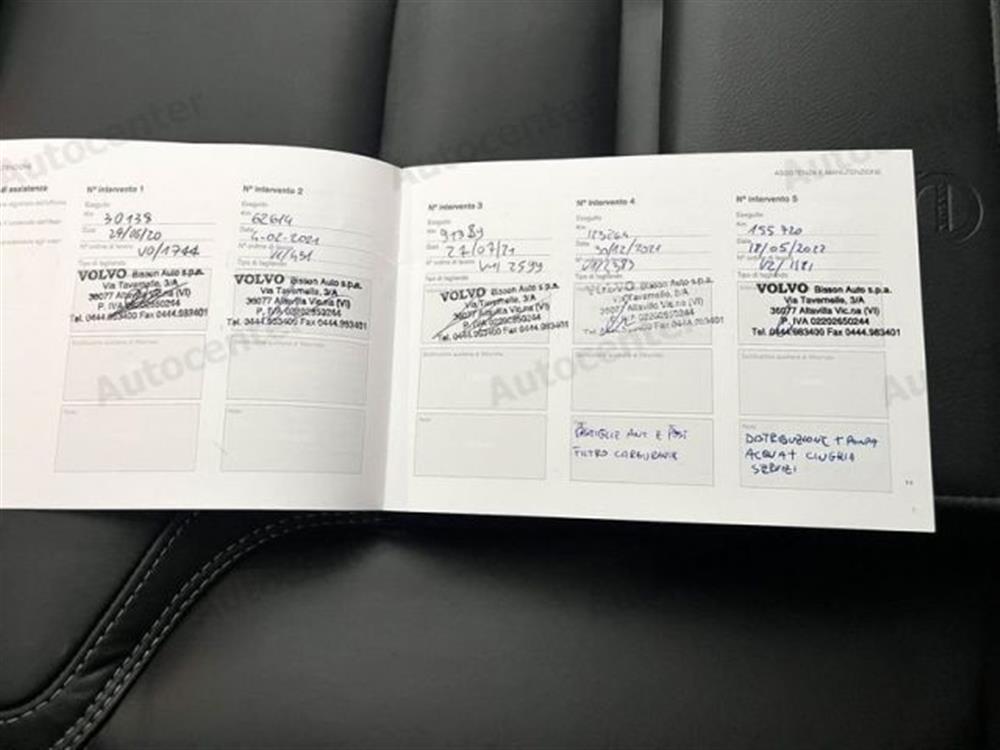 di assistenza
N° intervento 1
Eseguito
Km 30138
Data 29/06/20
N° ordine di lavoro
VO/1744
Tipo di tagliando
VOLVO Bisson Auto s.p.a.
Via Tavernelle, 3/A
36077 Altavilla Vic.na (VI)
P. IVA 02202650244
Tel. 0444.963400 Fax 0444.963401
Note
N° intervento 2
Eseguito
Km 62614
Data 4-02-2021
N° ordine di lavoro
Tipo di tagliando
VOLVO Bisson Auto s.p.a.
Via Tavernelle, 3/A
36077 Altavilla Vic.na (VI)
P. IVA 02202650244
Tel. 0444.963400 Fax 0444.963401
Note
ASSISTENZA E MANUTENZIONE
N° intervento 3
Eseguito
Km 91389
Data 27/07/21
N° ordine di lavoro
2599
Tipo di tagliando
VOLVO Bisson Auto s.p.a.
Via Tavernelle, 3/A
36077 Altavilla Vic.na (VI)
P. IVA 02202650244
Tel. 0444.963400 Fax 0444.963401
Note
N° intervento 4
Eseguito
Km
Data 30/12/2021
N° ordine di lavoro
Tipo di tagliando
VOLVO Bisson Auto s.p.a.
Via Tavernelle, 3/A
36077 Altavilla Vic.na (VI)
P. IVA 02202650244
Tel. 0444.963400 Fax 0444.963401
PASTIGLIE ANT E POST
FILTRO CARBURANTE
N° intervento 5
Eseguito
Km 155 720
Data 18/05/2022
N° ordine di lavoro
Tipo di tagliando
VOLVO Bisson Auto s.p.a.
Via Tavernelle, 3/A
36077 Altavilla Vic.na (VI)
P. IVA 02202650244
Tel. 0444.963400 Fax 0444.963401
Note
DISTRIBUZIONE + POMPA
ACQUA + CINGHIA
SERVIZI
Autocenter